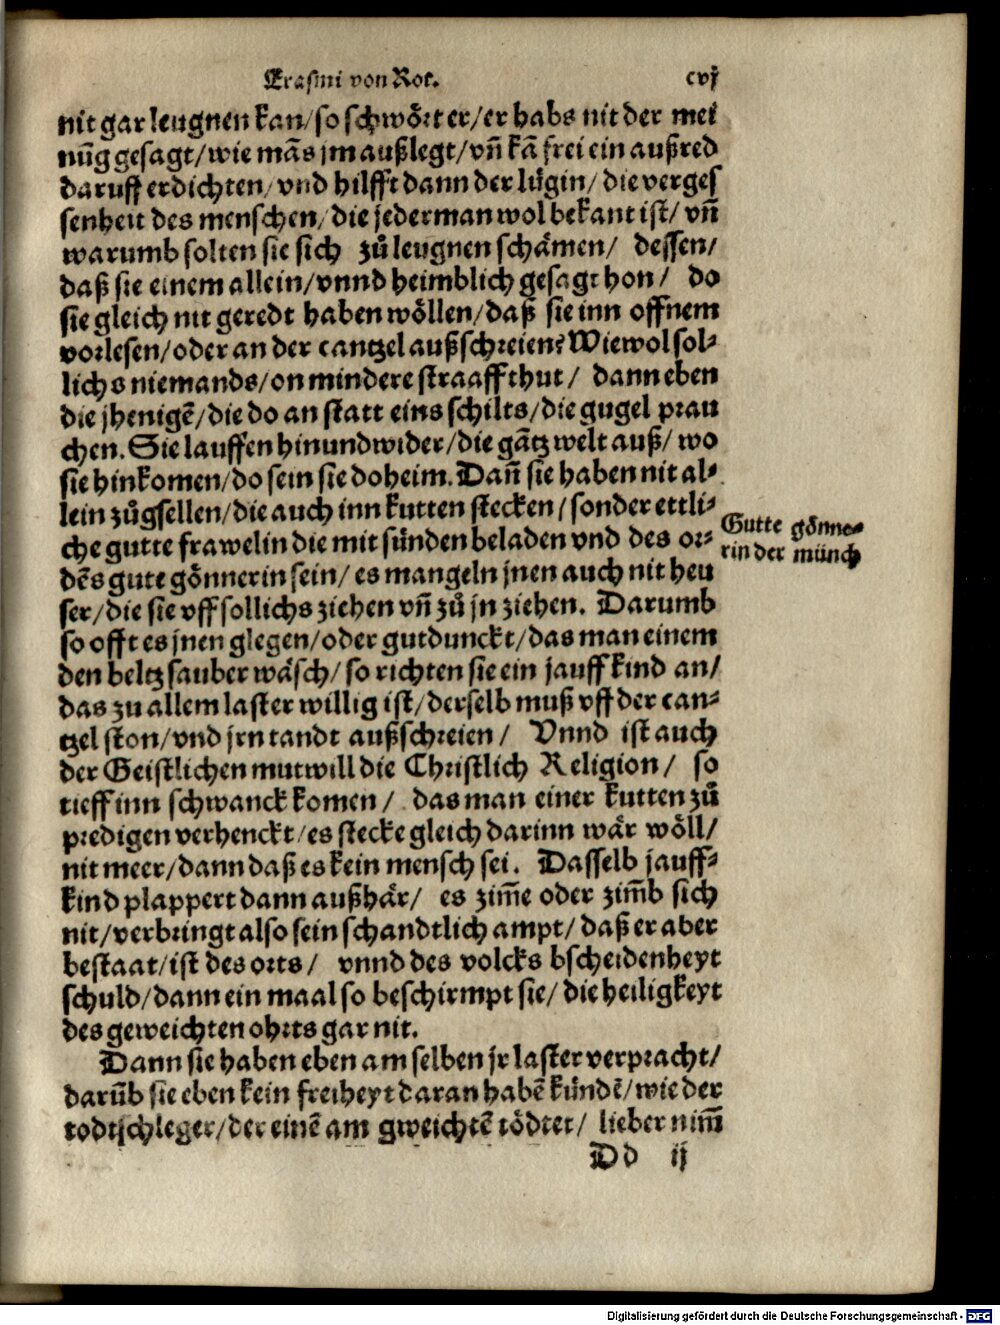 Erasmi von Rot. cvj
nit gar leugnen kan/so schwöꝛt er/er habs nit der mei
nũg gesagt/wie mãs jm außlegt/vñ kã frei ein außred
daruff erdichten/vnd hilfft dann der lügin/die verges
senheit des menschen/die jederman wol bekant ist/vñ
warumb solten sie sich zů leugnen schämen/ dessen/
daß sie einem allein/vnnd heimblich gesagt hon/ do
sie gleich nit geredt haben wöllen/daß sie inn offnem
voꝛlesen/oder an der cantzel außschꝛeien? Wiewol sol⸗
lichs niemands/on mindere straaff thut/ dann eben
die jhenigẽ/die do an statt eins schilts/die gugel pꝛau
chen. Sie lauffen hinundwider/die gãtz welt auß/wo
sie hinkomen/do sein sie doheim. Dañ sie haben nit al⸗
lein zůgsellen/die auch inn kutten stecken/sonder ettli⸗
che gutte frawelin die mit sünden beladen vnd des oꝛ⸗
dẽs gute gönnerin sein/es mangeln jnen auch nit heu
ser/die sie vff sollichs ziehen vñ zů jn ziehen. Darumb
so offt es jnen glegen/oder gutdunckt/das man einem
den beltz sauber wäsch/so richten sie ein jauff kind an/
das zu allem laster willig ist/derselb muß vff der can⸗
tzel ston/vnd jrn tandt außschꝛeien/ Vnnd ist auch
der Geistlichen mutwill die Chꝛistlich Religion/ so
tieff inn schwanck komen/ das man einer kutten zů
pꝛedigen verhenckt/es stecke gleich darinn wär wöll/
nit meer/dann daß es kein mensch sei. Dasselb jauff⸗
kind plappert dann außhär/ es zim̃e oder zim̃b sich
nit/verbꝛingt also sein schandtlich ampt/daß er aber
bestaat/ist des oꝛts/ vnnd des volcks bscheidenheyt
schuld/dann ein maal so beschirmpt sie/die heiligkeyt
des geweichten ohꝛts gar nit.
Dann sie haben eben am selben jr laster verpꝛacht/
darũb sie eben kein freiheyt daran habẽ kündẽ/wie der
todtschleger/der einẽ am gweichtẽ tödtet/ lieber nim̃
Dd ij
Gutte gönne⸗
rin der münch
Digitalisierung gefördert durch die Deutsche Forschungsgemeinschaft - DFG